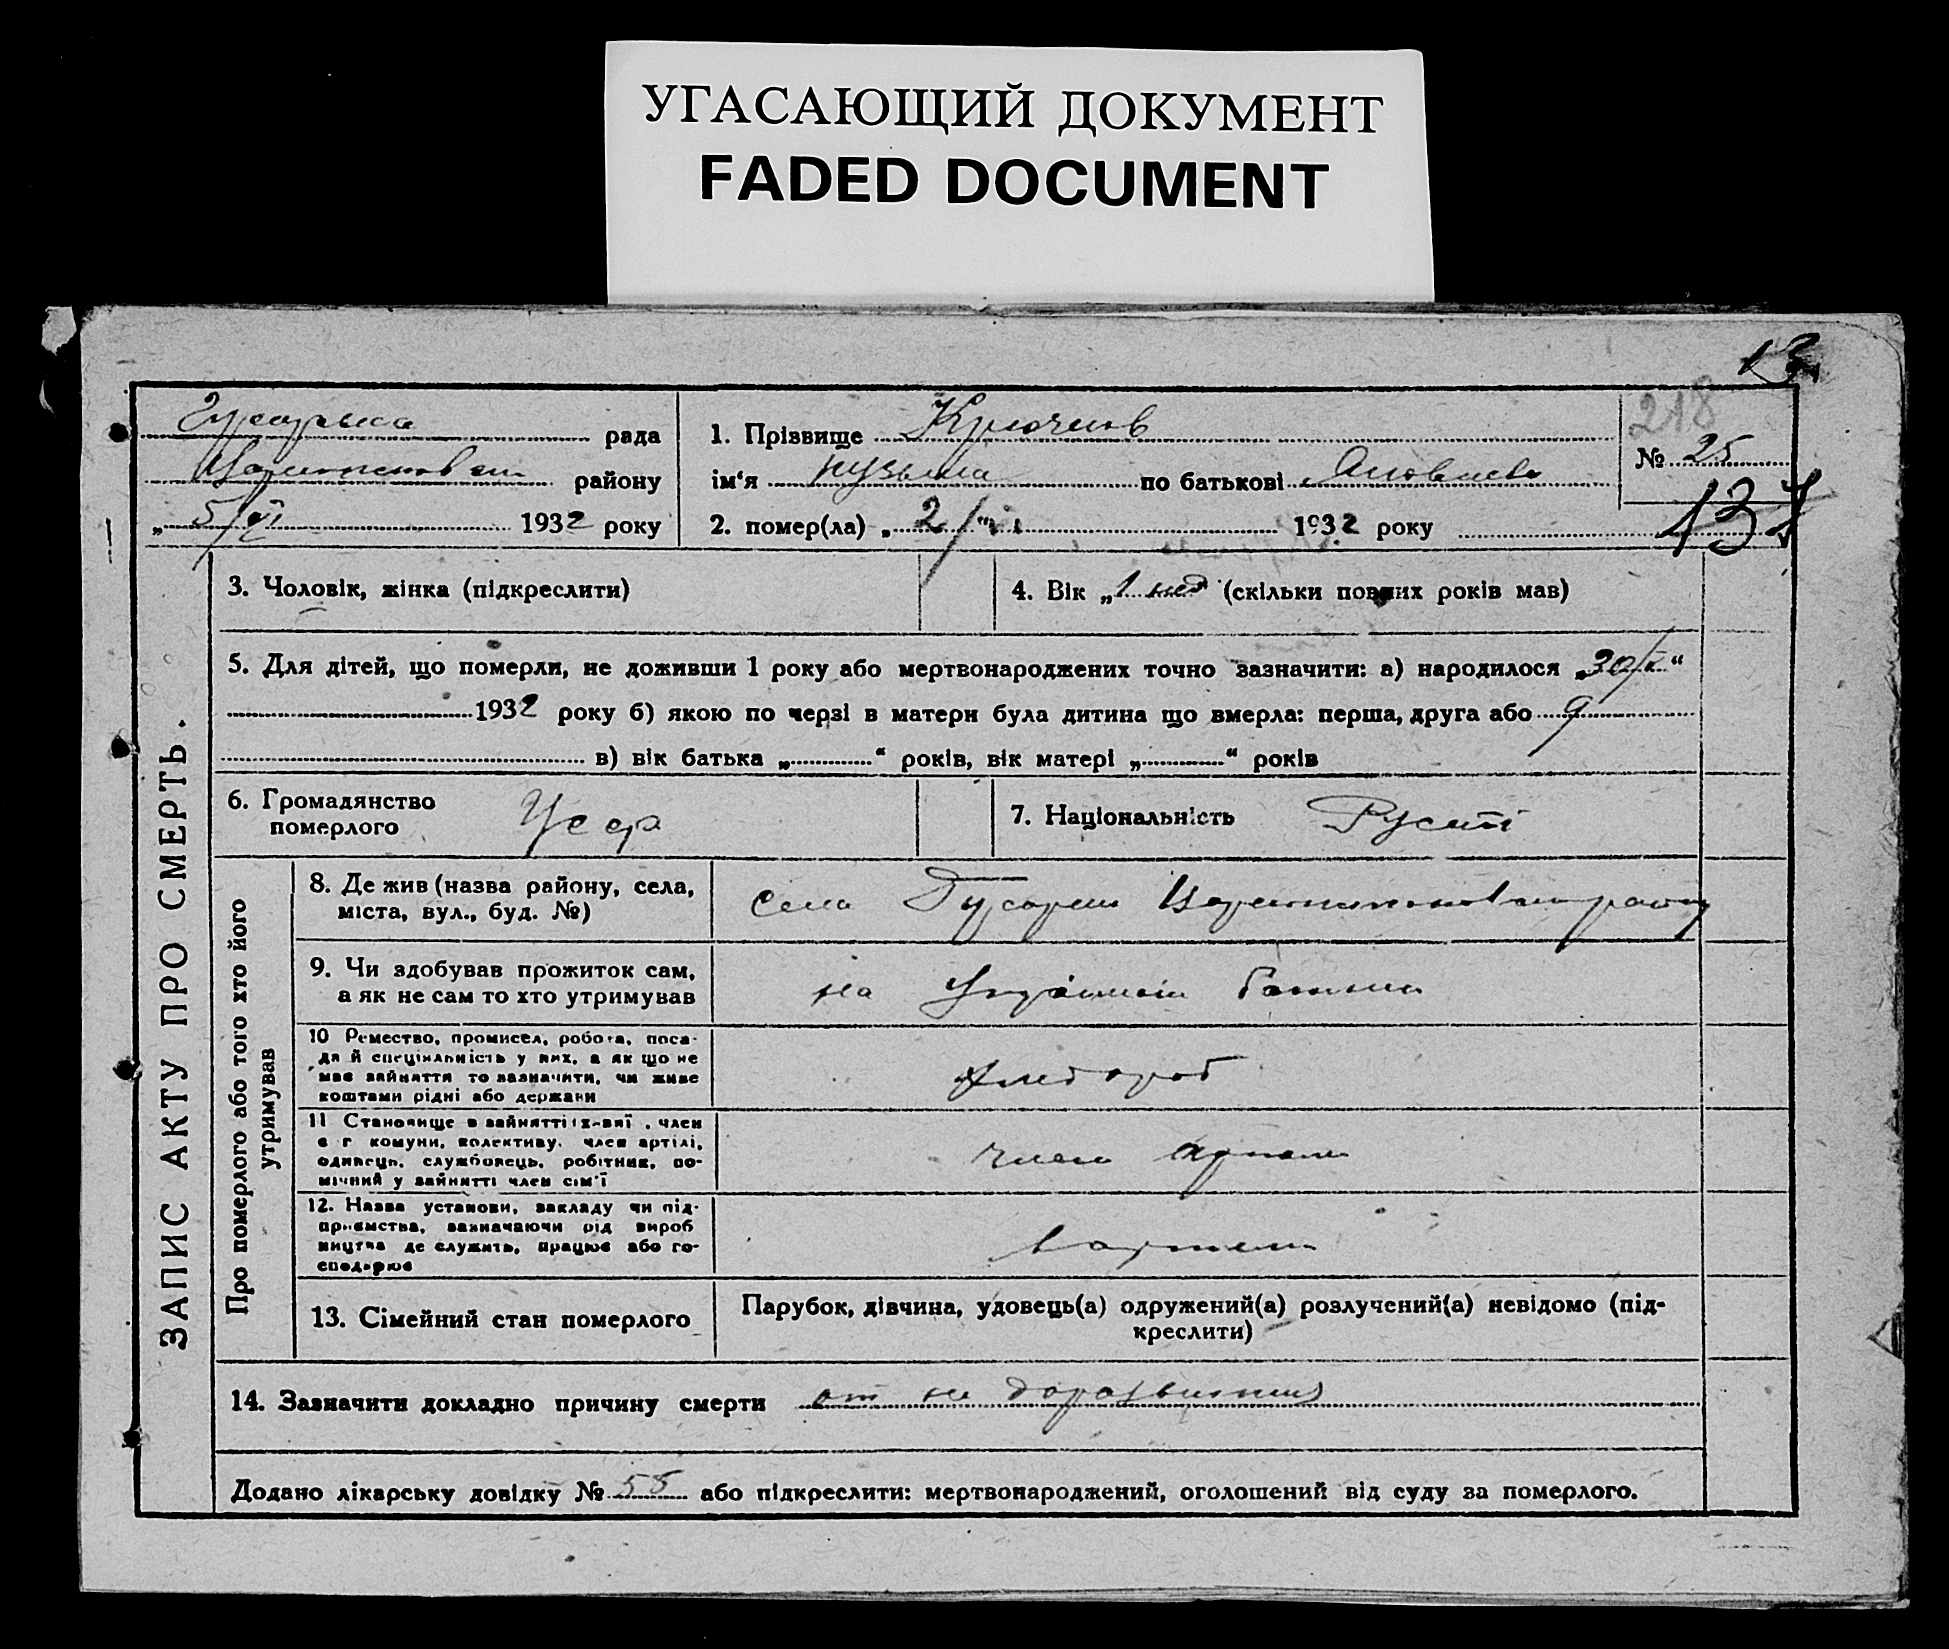 УГАСАЮЩИЙ ДОКУМЕНТ
FADED DOCUMENT
13
218
рада
району
„ 5/VI 1932 року
1. Прізвище Крючков
ім‘я Кузьма по батькові Яковлев
2. помер(ла) „ 2/VI 1932 року
№ 25
137
ЗАПИС АКТУ ПРО СМЕРТЬ.
3. Чоловік, жінка (підкреслити)
4. Вік „ 1 нед (скільки повних років мав)
5. Для дітей, що померли, не доживши 1 року або мертвонароджених точно зазначити: а) народилося „30/ “
1932 року б) якою по черзі в матери була дитина що вмерла: перша, друга або 9
в) вік батька „ “ років, вік матері „ “ років
6. Громадянство
померлого
Усср
7. Національність
Руский
Про померлого або того хто його
утримував
8. Де жив (назва району, села,
міста, вул., буд. №)
село
9. Чи здобував прожиток сам,
а як не сам то хто утримував
на
10 Ремество, промисел, робота, поса-
да й спеціяльність у них, а як що не
має зайняття то зазначити, чи живе
коштами рідні або держави
хлебороб
11 Становище в зайнятті: х-вий, член
с г комуни, колективу, член артілі,
одинець, службовець, робітник, по-
мічний у зайнятті член сім‘ї
член артели
12. Назва установи, закладу чи під-
приємства, зазначаючи рід вироб
ництва де служить, працює або го-
сподарює
в артели
13. Сімейний стан померлого
Парубок, дівчина, удовець(а) одружений(а) розлучений(а) невідомо (під-
креслити)
14. Зазначити докладно причину смерти от не доразвития
Додано лікарську довідку № 58 або підкреслити: мертвонароджений, оголошений від суду за померлого.